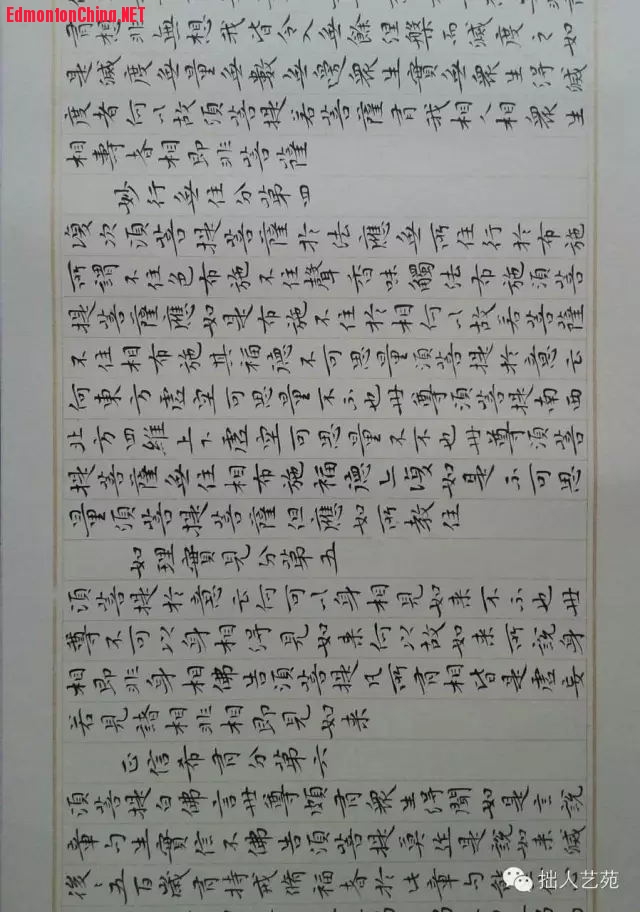 EdmontonChina.NET
有想非無想我皆令入無餘涅槃而滅度之如
是滅度無量無數無邊衆生實無衆生得滅
度者何以故須菩提若菩薩有我相人相衆生
相壽者相即非菩薩
妙行無住分第四
復次須菩提菩薩於法應無所住行於布施
所謂不住色布施不住聲香味觸法布施須菩
提菩薩應如是布施不住於相何以故若菩薩
不住相布施其福德不可思量須菩提於意云
何東方虛空可思量不不也世尊須菩提南西
北方四維上下虛空可思量不不也世尊須菩
提菩薩無住相布施福德亦復如是不可思
量須菩提菩薩但應如所教住
如理實見分第五
須菩提於意云何可以身相見如来不不也世
尊不可以身相得見如来何以故如来所說身
相即非身相佛告須菩提凡所有相皆是虛妄
若見諸相非相即見如来
正信希有分第六
須菩提白佛言世尊頗有衆生得聞如是言說
章句生實信不佛告須菩提莫作是說如来滅
後々五百歲有持戒脩福者於此章句
拙人艺苑